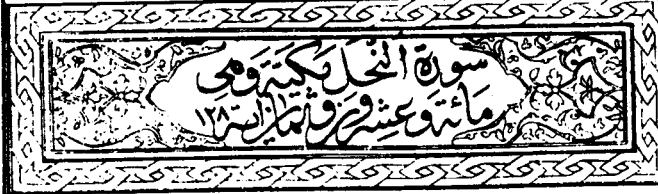 سورة النحل مكية وهي
مائة وعشرون وثمان اية ١٢٨